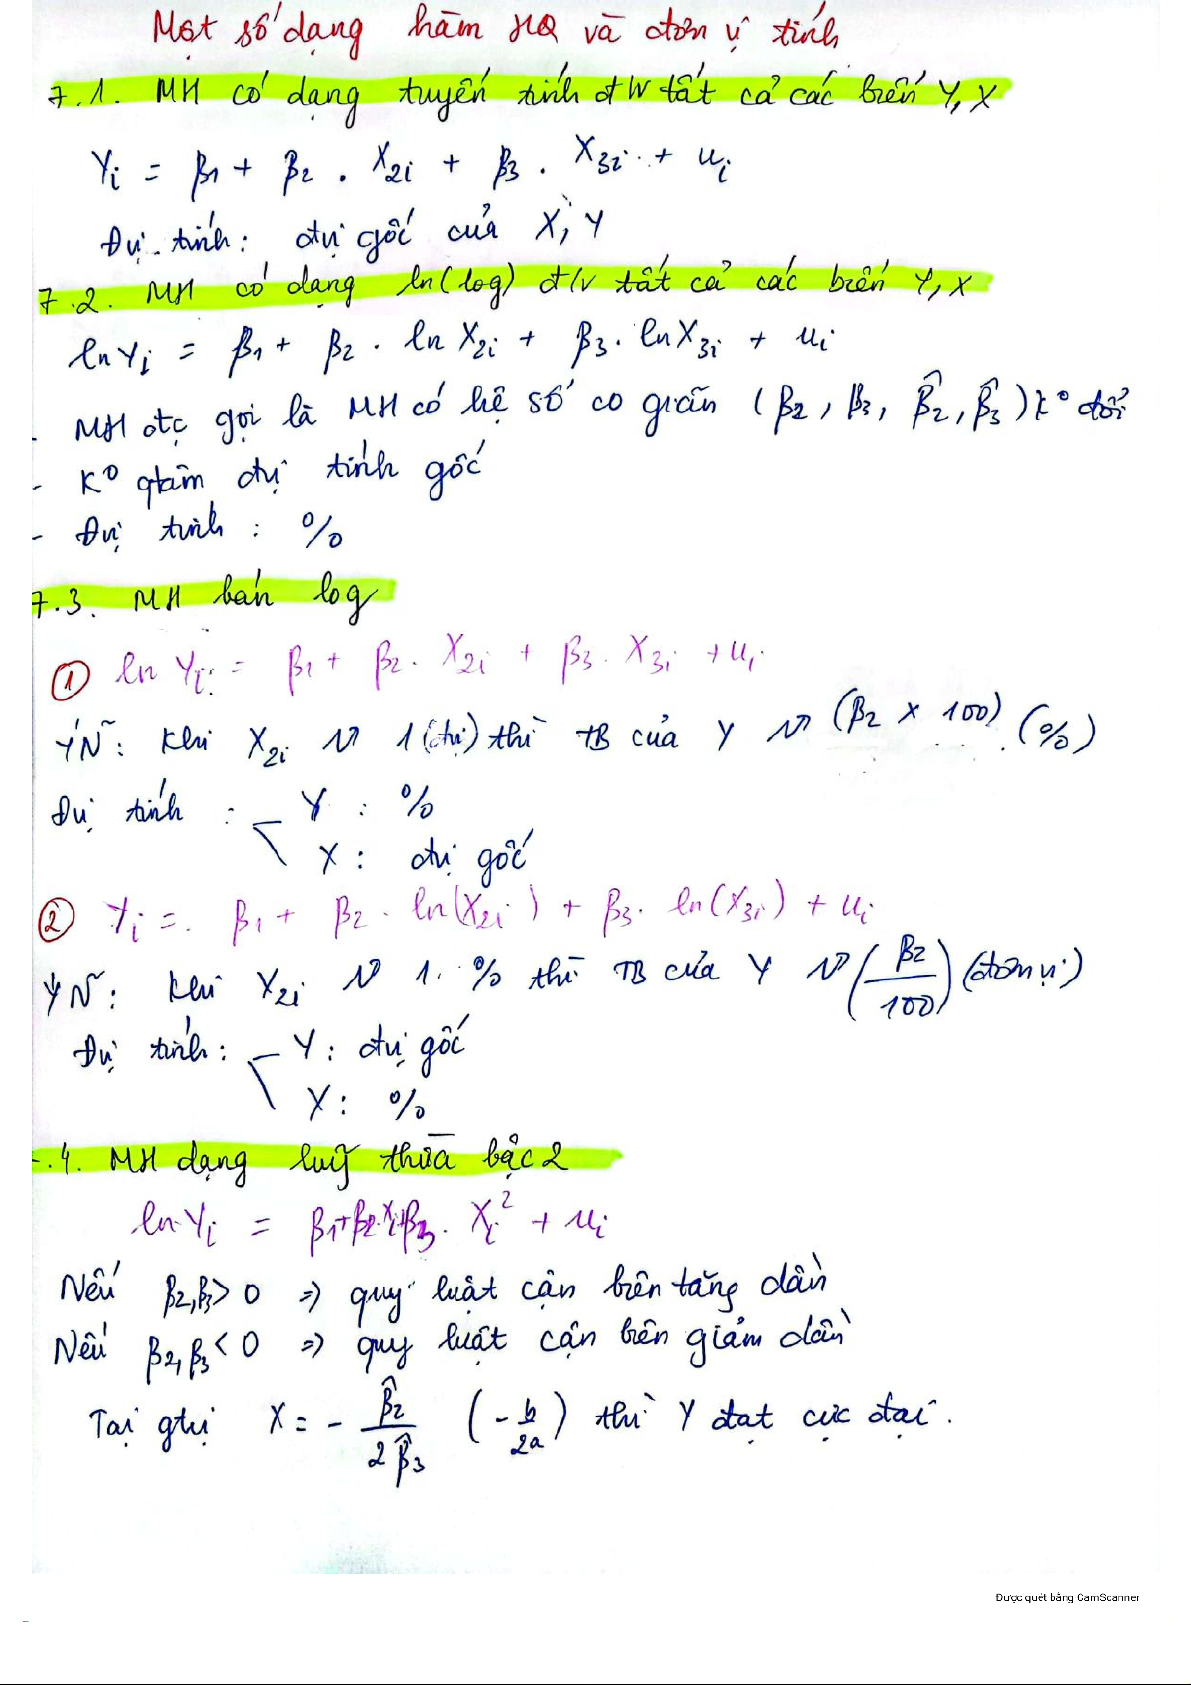 Một số dạng hàm HQ và đơn vị tính
7.1. MH có dạng tuyến tính đ/v tất cả các biến Y, X
Yi = β1 + β2 . X2i + β3 . X3i + ui
Đvị tính: đvị gốc của X, Y
7.2. MH có dạng ln(log) đ/v tất cả các biến Y, X
lnYi = β1 + β2 . ln X2i + β3. lnX3i + ui
- MH đc gọi là MH có hệ số co giãn (β2, β3, β̂2, β̂3) k° đổi
- K° qtâm đvị tính gốc
- Đvị tính : %
7.3. MH bán log
① ln Yi = β1 + β2. X2i + β3. X3i + ui
YN: Khi X2i ↑ 1 (đvị) thì TB của Y ↑ (β2 x 100) (%)
Đvị tính : Y : %
X : đvị gốc
② Yi = β1 + β2 . ln(X2i) + β3. ln(X3i) + ui
YN: Khi X2i ↑ 1. % thì TB của Y ↑ (β2/100) (đơn vị)
Đvị tính: Y: đvị gốc
X: %
.4. MH dạng luỹ thừa bậc 2
lnYi = β1+β2.Xi+β3. Xi² + ui
Nếu β2,β3 > 0 => quy luật cận biên tăng dần
Nếu β2,β3 < 0 => quy luật cận biên giảm dần
Tại gtrị X = - β̂2/2β̂3 (-b/2a) thì Y đạt cực đại.
Được quét bằng CamScanner